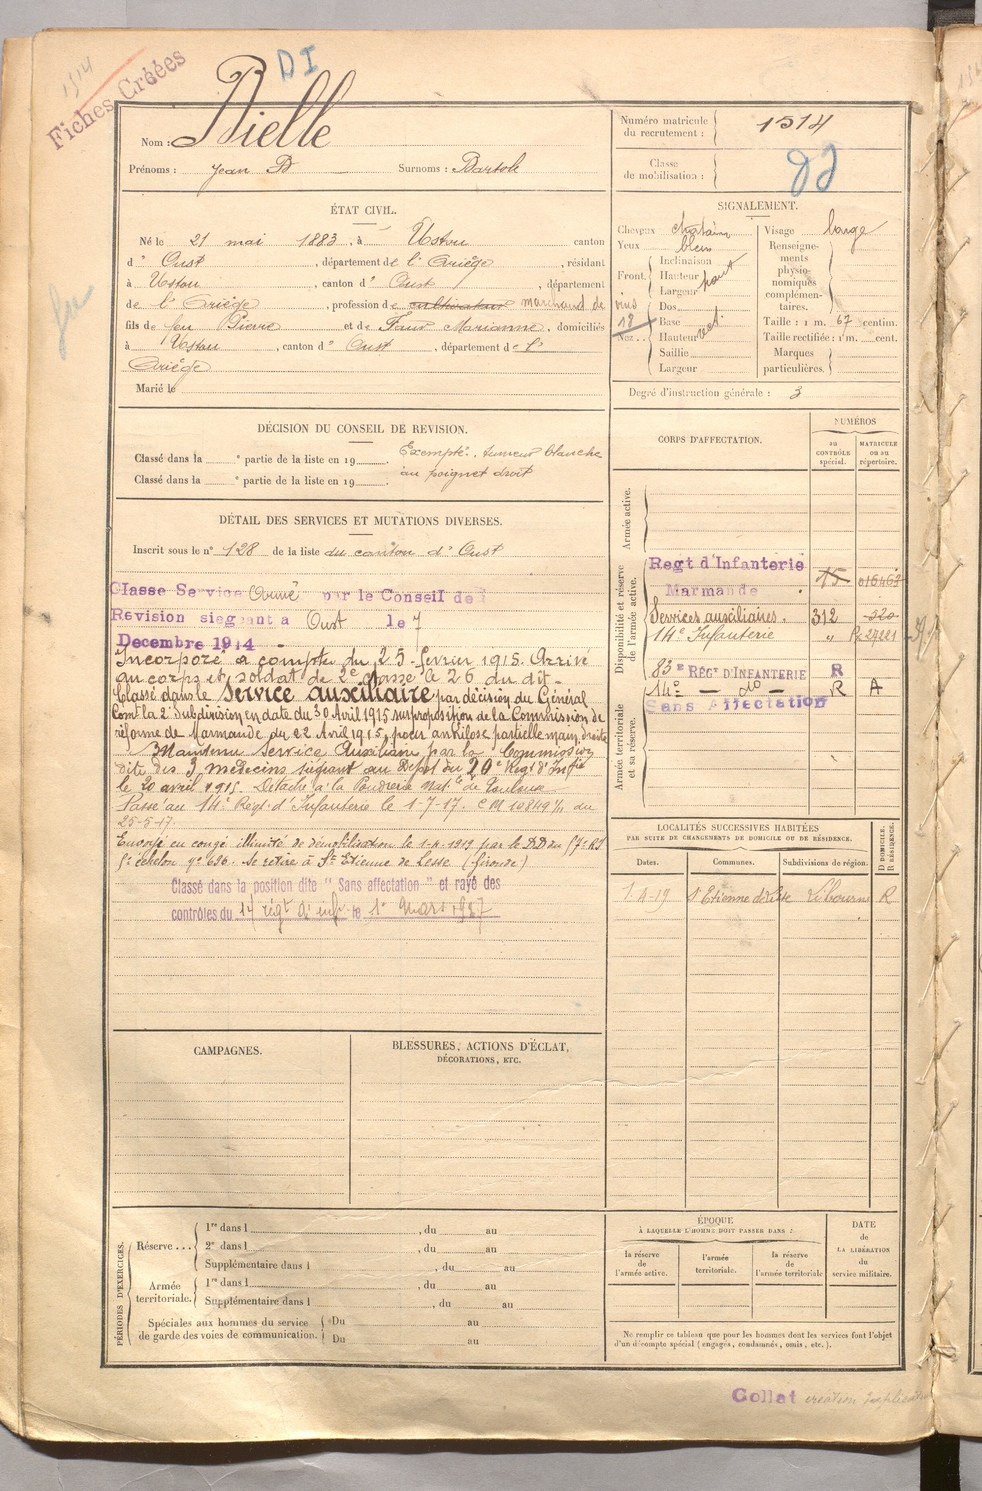 1514
Fiches Créées
DI
Nom : Bielle
Prénoms : Jean Bte Surnoms : Bartoli
Numéro matricule du recrutement : 1514
Classe de mobilisation :
ÉTAT CIVIL.
Né le 21 mai 1883, à Ustou canton
d' Oust, département de l'Ariège, résidant
à Ustou, canton d' Oust, département
de l'Ariège, profession de cultivateur marchand de vins
fils de feu Pierre et de Faur Marianne, domiciliés
à Ustou, canton d' Oust, département de l'
Ariège
Marié le
SIGNALEMENT.
Cheveux chatain
Yeux bleu
Front.
Inclinaison
Hauteur haut
Largeur
Nez..
Dos
Base
Hauteur rect.
Saillie
Largeur
Visage large
Renseignements physionomiques complémentaires.
Taille : 1 m. 67 centim.
Taille rectifiée : 1 m. cent.
Marques particulières.
Degré d'instruction générale : 3
DÉCISION DU CONSEIL DE REVISION.
Classé dans la e partie de la liste en 19 Exempté. tumeur blanche
Classé dans la e partie de la liste en 19 au poignet droit
DÉTAIL DES SERVICES ET MUTATIONS DIVERSES.
Inscrit sous le n° 128 de la liste du canton d' Oust
Classe Service Armé par le Conseil de
Revision siegeant a Oust le 7
Decembre 1914
Incorporé à compter du 25 février 1915. Arrivé
au corps et soldat de 2e classe le 26 du dit -
Classé dans le Service auxiliaire par décision du Général
Comt la 2e Subdivision en date du 30 Avril 1915 sur proposition de la Commission de
réforme de Marmande du 22 Avril 1915, pour ankilose partielle main droite
Maintenu Service Auxiliaire par la Commission
dite des 3 médecins siégeant au Dépôt du 20e Régt d'Inftie
le 20 avril 1915. Détaché à la Poudrerie Natle de Toulouse
Passé au 14e Régt d'Infanterie le 1-7-17. CM 10849 1/11 du
25-5-17.
Envoyé en congé illimité de démobilisation le 1-4-1919 par le
échelon n° 686. Se retire à St Etienne de Lesse (Gironde)
Classé dans la position dite " Sans affectation " et rayé des
contrôles du 14 régt d'inf. le 1er Mars 1937
CORPS D'AFFECTATION.
NUMÉROS
au CONTRÔLE spécial.
MATRICULE ou au répertoire.
Armée active.
Disponibilité et réserve de l'armée active.
Regt d'Infanterie 15 016463
Marmande
Services auxiliaires. 312 520
14e Infanterie " 24221
Armée territoriale et sa réserve.
83e RÉGt D'INFANTERIE R
14e — do — R A
Sans Affectation
LOCALITÉS SUCCESSIVES HABITÉES
PAR SUITE DE CHANGEMENTS DE DOMICILE OU DE RÉSIDENCE.
Dates. Communes. Subdivisions de région. D DOMICILE. R RÉSIDENCE.
1-4-19 St Etienne de Lisse Libourne R
CAMPAGNES.
BLESSURES, ACTIONS D'ÉCLAT,
DÉCORATIONS, ETC.
PÉRIODES D'EXERCICES.
Réserve ...
1re dans l , du au
2e dans l , du au
Supplémentaire dans l , du au
Armée territoriale.
1re dans l , du au
Supplémentaire dans l , du au
Spéciales aux hommes du service
de garde des voies de communication.
Du au
Du au
ÉPOQUE
À LAQUELLE L'HOMME DOIT PASSER DANS :
la réserve de l'armée active.
l'armée territoriale.
la réserve de l'armée territoriale
DATE
de
LA LIBÉRATION
du
service militaire.
Ne remplir ce tableau que pour les hommes dont les services font l'objet
d'un décompte spécial (engagés, condamnés, omis, etc.).
Collat